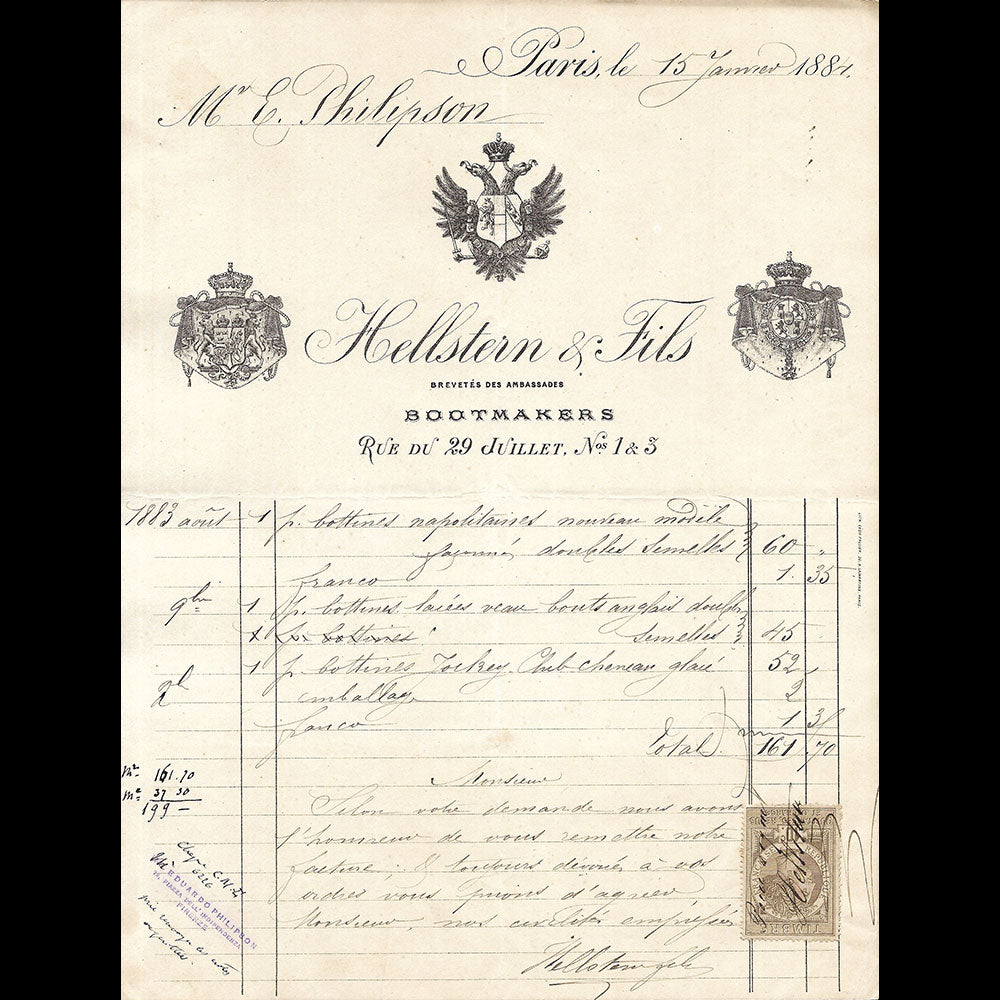 Paris, le 15 Janvier 1884.
Mr E. Philipson
Hellstern & Fils
BREVETÉS DES AMBASSADES
BOOTMAKERS
RUE DU 29 JUILLET, Nos 1 & 3
1883 août 1 p. bottines napolitaines nouveau modèle
façonné doubles semelles 60 "
franco 1. 35
9bre 1 p. bottines laiées veau bouts anglais doubles
1 p. bottines semelles 45 .
1 p. bottines Jockey Club chevreau glacé 52
emballage 2
franco 1 35
Total. 161.70
Mr 161.70
Me 37 30
199 -
Monsieur
Selon votre demande nous avons
l'honneur de vous remettre notre
facture; & toujours dévoués à vos
ordres vous prions d'agréer
Monsieur, nos civilités empressées
Hellstern fils
EDUARDO PHILIPSON
PIAZZA DELL'INDIPENDENZA
FIRENZE
TIMBRE